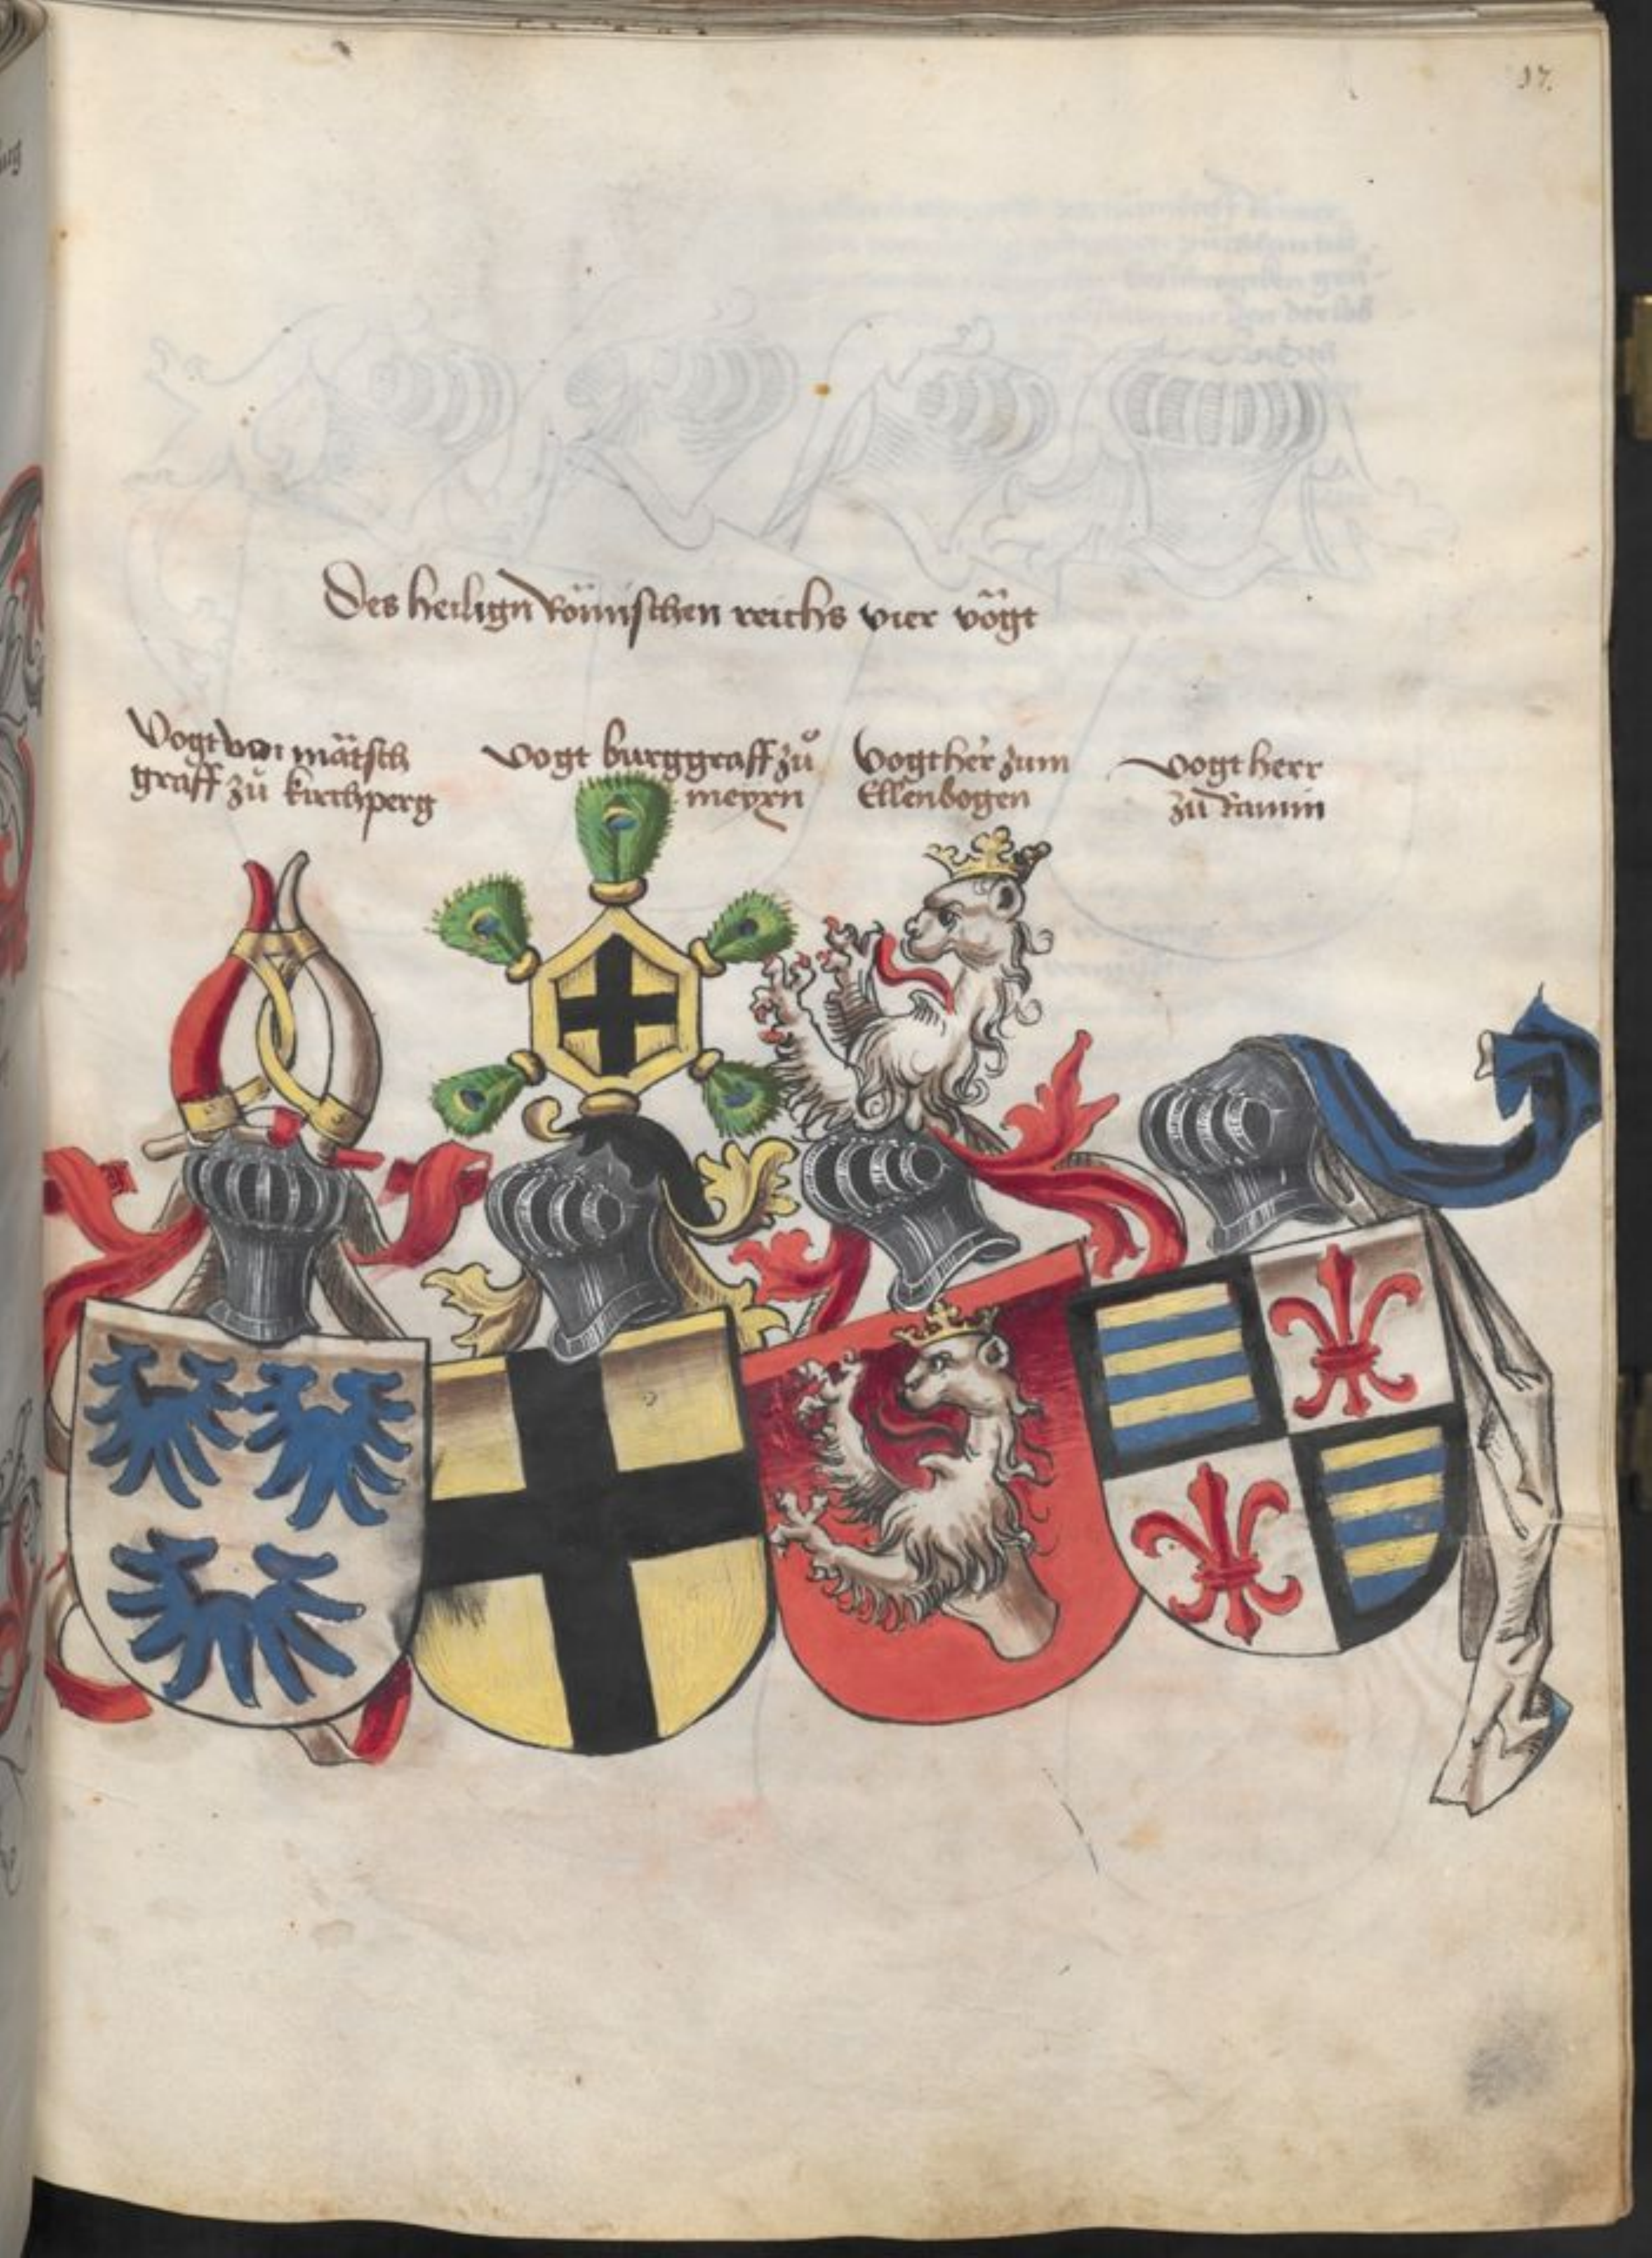 17.
Des heilign Römischen reichs vier vögt
Vogt von mätsch
graff zů kirchperg
Vogt burggraff zů
meyxn
Vogt her zum
Ellenbogen
Vogt herr
zů